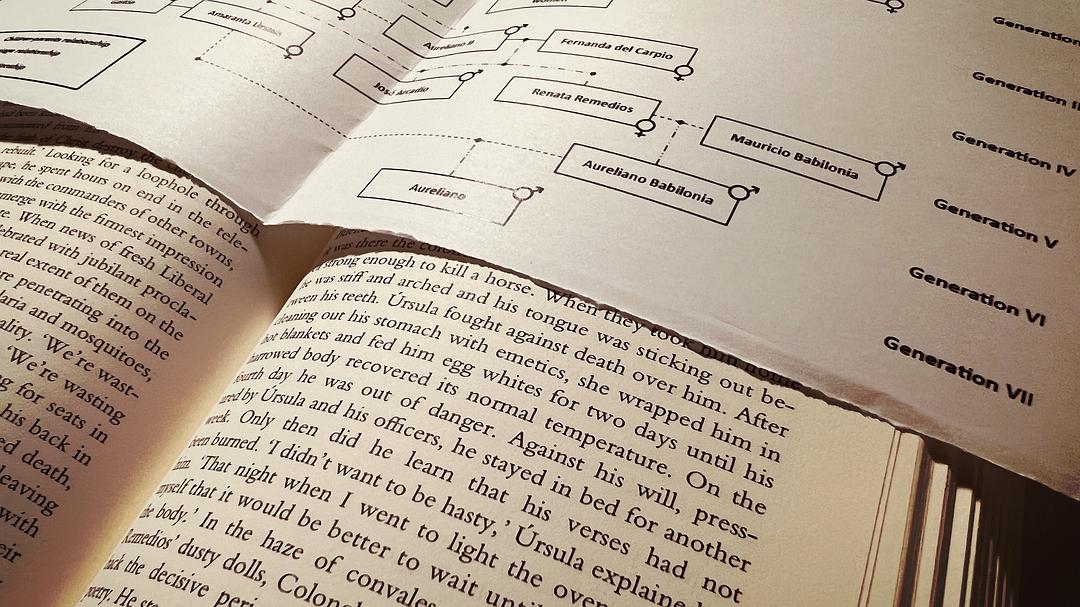 Women
Gaston
Amaranta Úrsula
Aureliano II
Fernanda del Carpio
José Arcadio
Renata Remedios
Mauricio Babilonia
Aureliano Babilonia
Aureliano
Generation
Generation II
Generation IV
Generation V
Generation VI
Generation VII
Children-parents relationship
relationship
destroy the
rebuilt.' Looking for a loophole through
he spent hours on end in the tele-
with the commanders of other towns,
merge with the firmest impression
re. When news of fresh Liberal
ebrated with jubilant procla-
real extent of them on the
re penetrating into the
laria and mosquitoes,
ality. 'We're wast-
'We're wasting
g for seats in
his back in
ed death,
leaving
with
eir
was there the
strong enough to kill a horse. When they took him home
he was stiff and arched and his tongue was sticking out be-
tween his teeth. Úrsula fought against death over him. After
cleaning out his stomach with emetics, she wrapped him in
hot blankets and fed him egg whites for two days until his
harrowed body recovered its normal temperature. On the
fourth day he was out of danger. Against his will, press-
ured by Úrsula and his officers, he stayed in bed for another
week. Only then did he learn that his verses had not
been burned. 'I didn't want to be hasty,' Úrsula explained
him. 'That night when I went to light the oven
myself that it would be better to wait until
the body.' In the haze of convales
Remedios' dusty dolls, Colonel
back the decisive peri
poetry. He